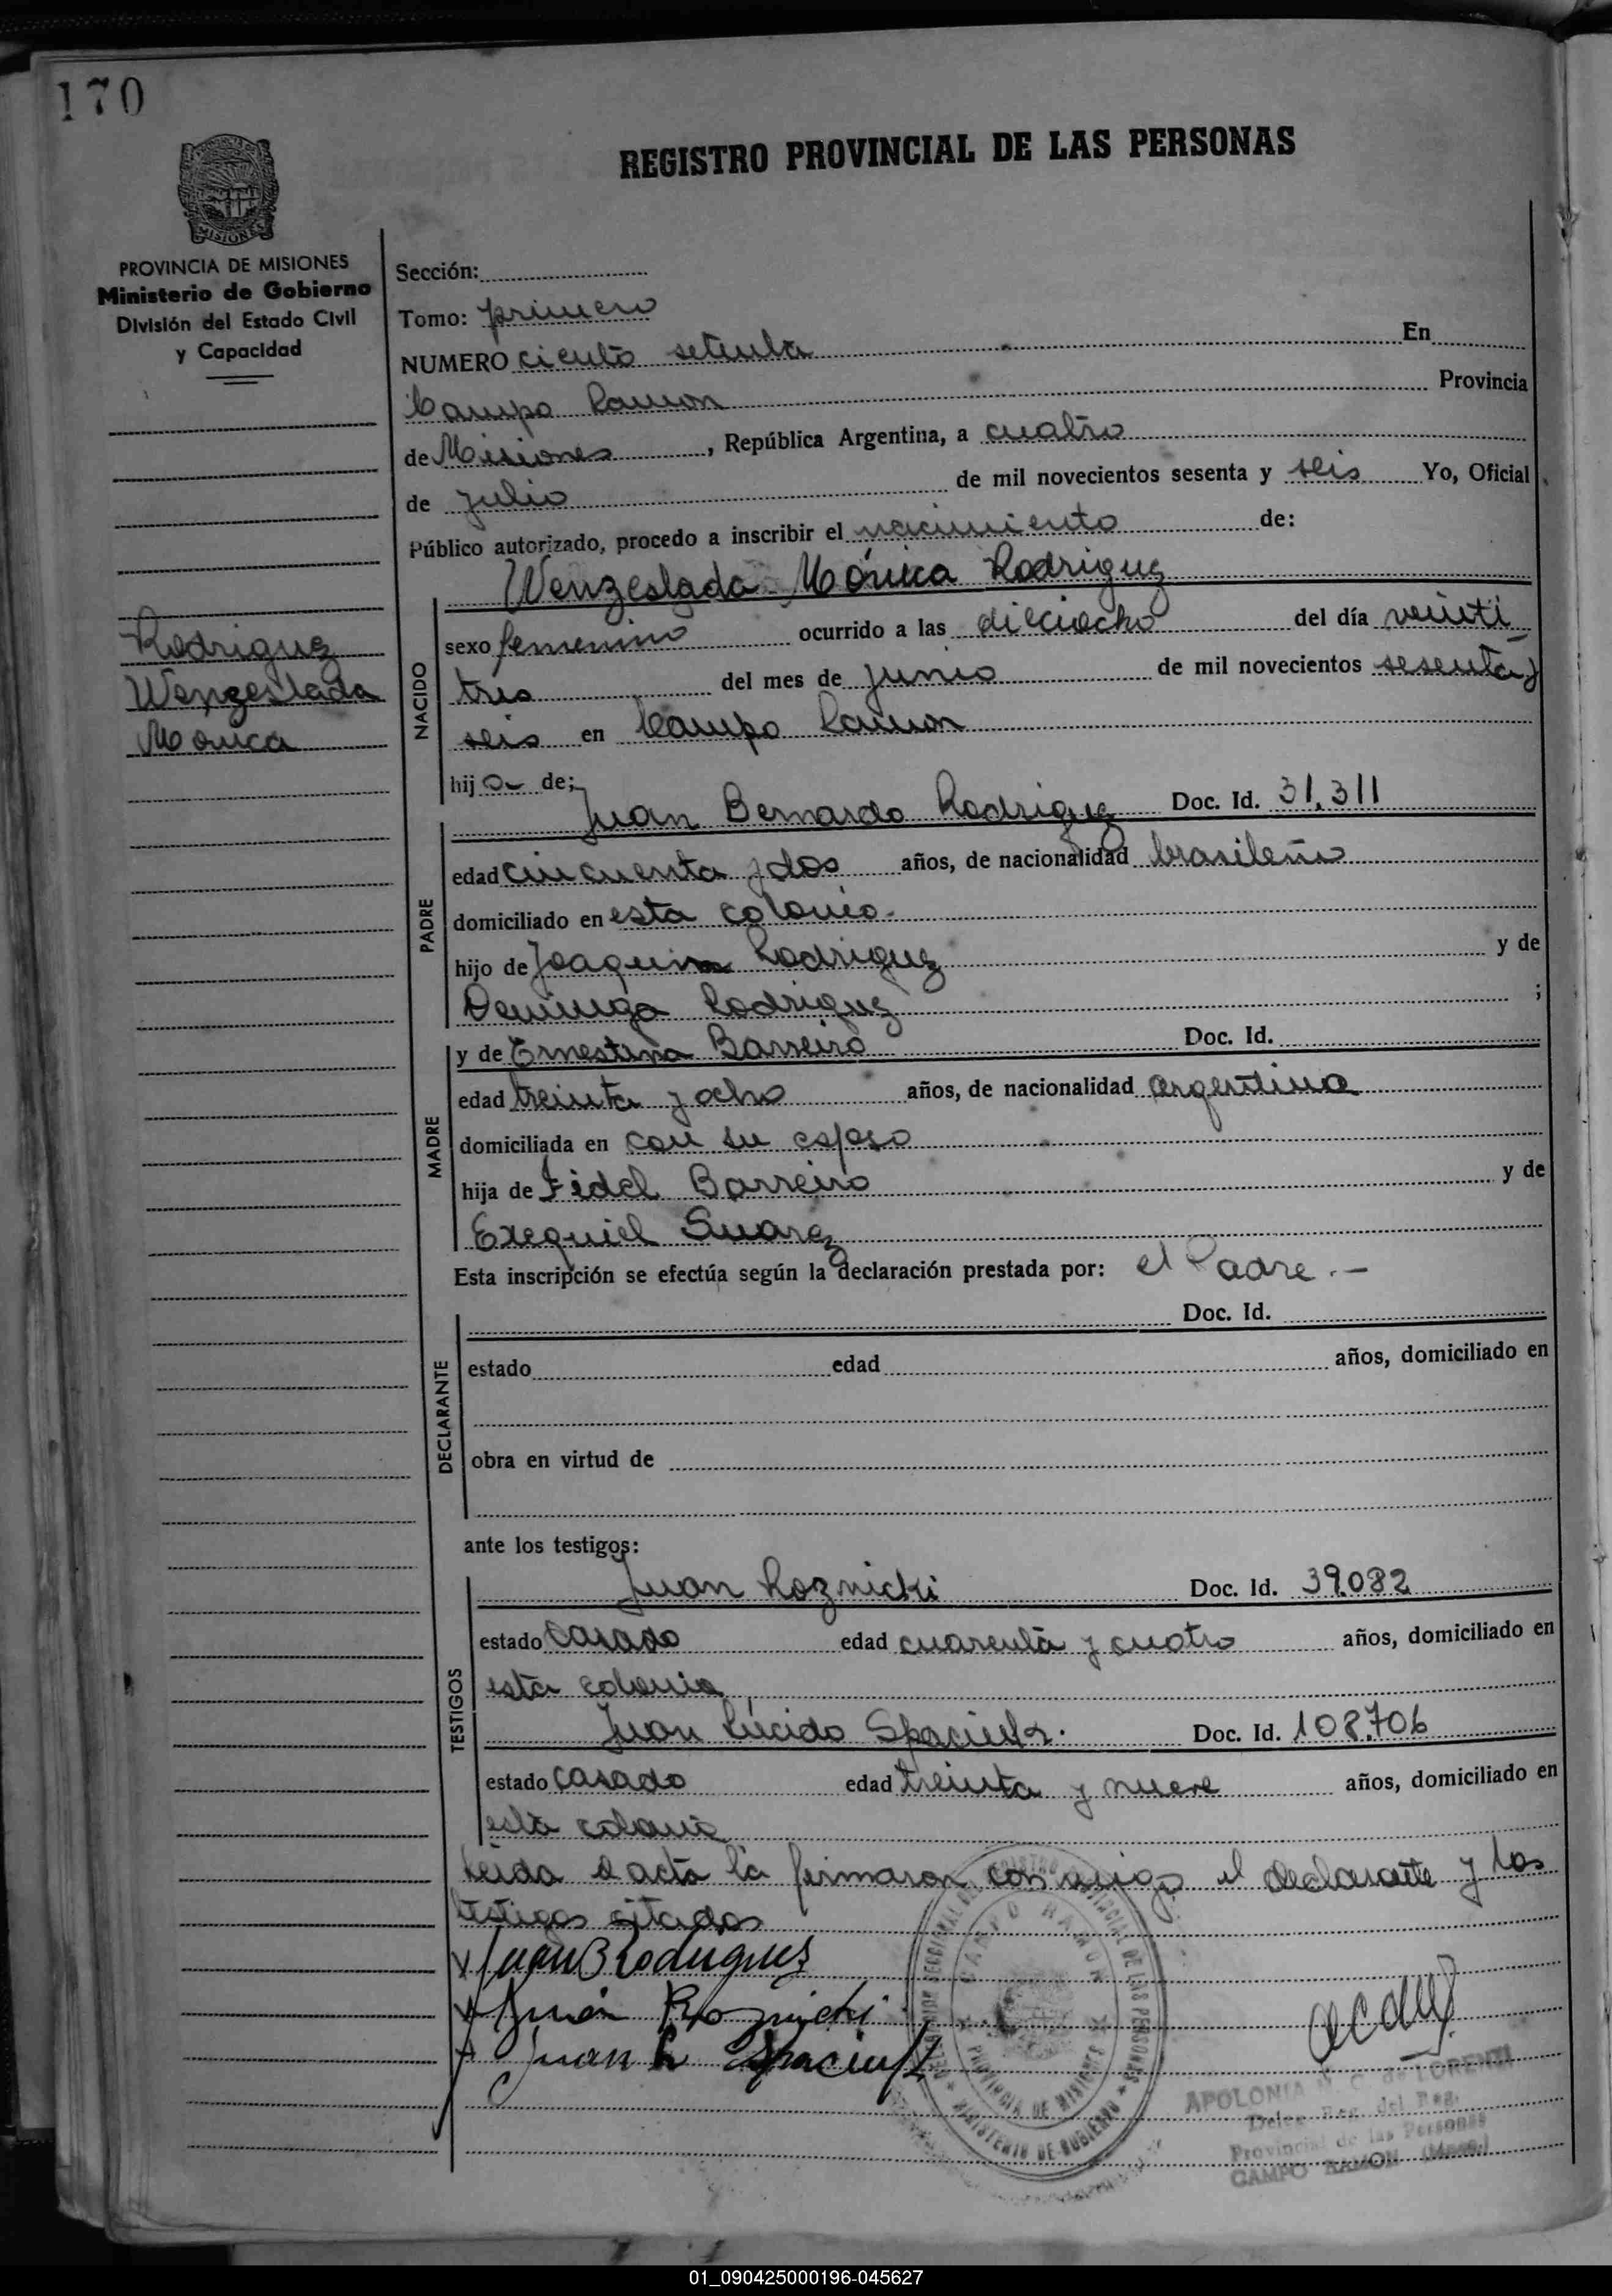 170
REGISTRO PROVINCIAL DE LAS PERSONAS
MISIONES
PROVINCIA DE MISIONES
Ministerio de Gobierno
División del Estado Civil
y Capacidad
Rodriguez
Wenzeslada
Monica
Sección:
Tomo: primero
NUMERO ciento setenta En
Campo Ramon Provincia
de Misiones, República Argentina, a cuatro
de julio de mil novecientos sesenta y seis Yo, Oficial
Público autorizado, procedo a inscribir el nacimiento de:
Wenzeslada Mónica Rodriguez
NACIDO
sexo femenino ocurrido a las dieciocho del día veinti
tres del mes de junio de mil novecientos sesenta y
seis en Campo Ramon
hija de;
PADRE
Juan Bernardo Rodriguez Doc. Id. 31.311
edad cincuenta y dos años, de nacionalidad brasileño
domiciliado en esta colonia.
hijo de Joaquin Rodriguez y de
Rodriguez ;
MADRE
y de Ernestina Barreiro Doc. Id.
edad treinta y ocho años, de nacionalidad argentina
domiciliada en con su esposo
hija de Fidel Barreiro y de
Exequiel Suarez
Esta inscripción se efectúa según la declaración prestada por: el Padre.-
DECLARANTE
Doc. Id.
estado edad años, domiciliado en
obra en virtud de
ante los testigos:
TESTIGOS
Juan Roznicki Doc. Id. 39.082
estado casado edad cuarenta y cuatro años, domiciliado en
esta colonia
Juan Lúcido Spaciuk. Doc. Id. 108.706
estado casado edad treinta y nueve años, domiciliado en
esta colonia
leida el acta la firmaron conmigo el declarante y los
testigos citados
Juan B Rodriguez
Juan Roznicki
Juan L Spaciuk
CAMPO RAMON
PROVINCIA DE MISIONES
MINISTERIO DE GOBIERNO
APOLONIA de LORENTI
Deleg. Reg. del Reg.
Provincial de las Personas
CAMPO RAMON (Mnes.)
01_090425000196-045627